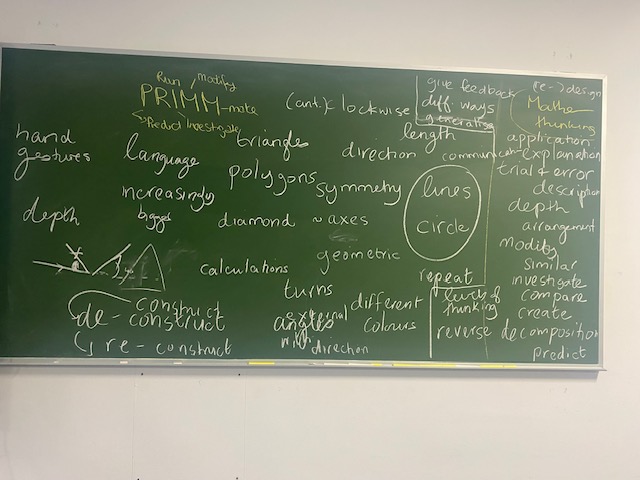 Run / modify
PRIMM-make
Predict Investigate
(anti)clockwise
give feedback
diff. ways
generating
(re-)design
Mathe
thinking
hand
gestures
language
triangles
direction
length
communicat
application
explanation
trial + error
description
depth
arrangement
modify
similar
investigate
compare
create
decomposition
predict
increasingly
bigger
polygons
symmetry
lines
circle
depth
diamond
~axes
geometric
calculations
repeat
turns
different
colours
external
angles
with direction
levels of
thinking
reverse
construct
de-construct
re-construct